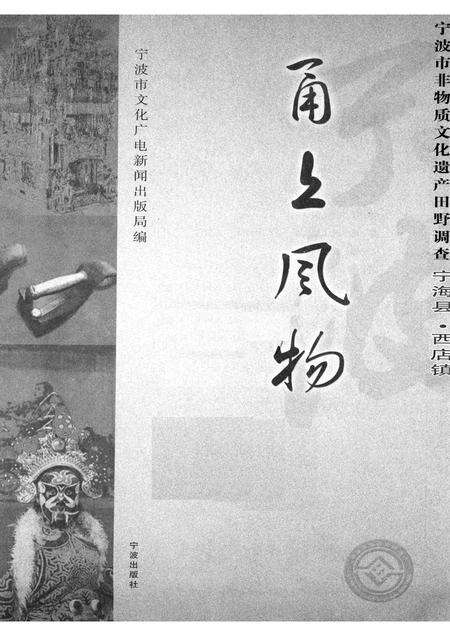 宁波市非物质文化遗产田野调查 宁海县·西店镇
甬上风物
宁波市文化广电新闻出版局编
宁波出版社